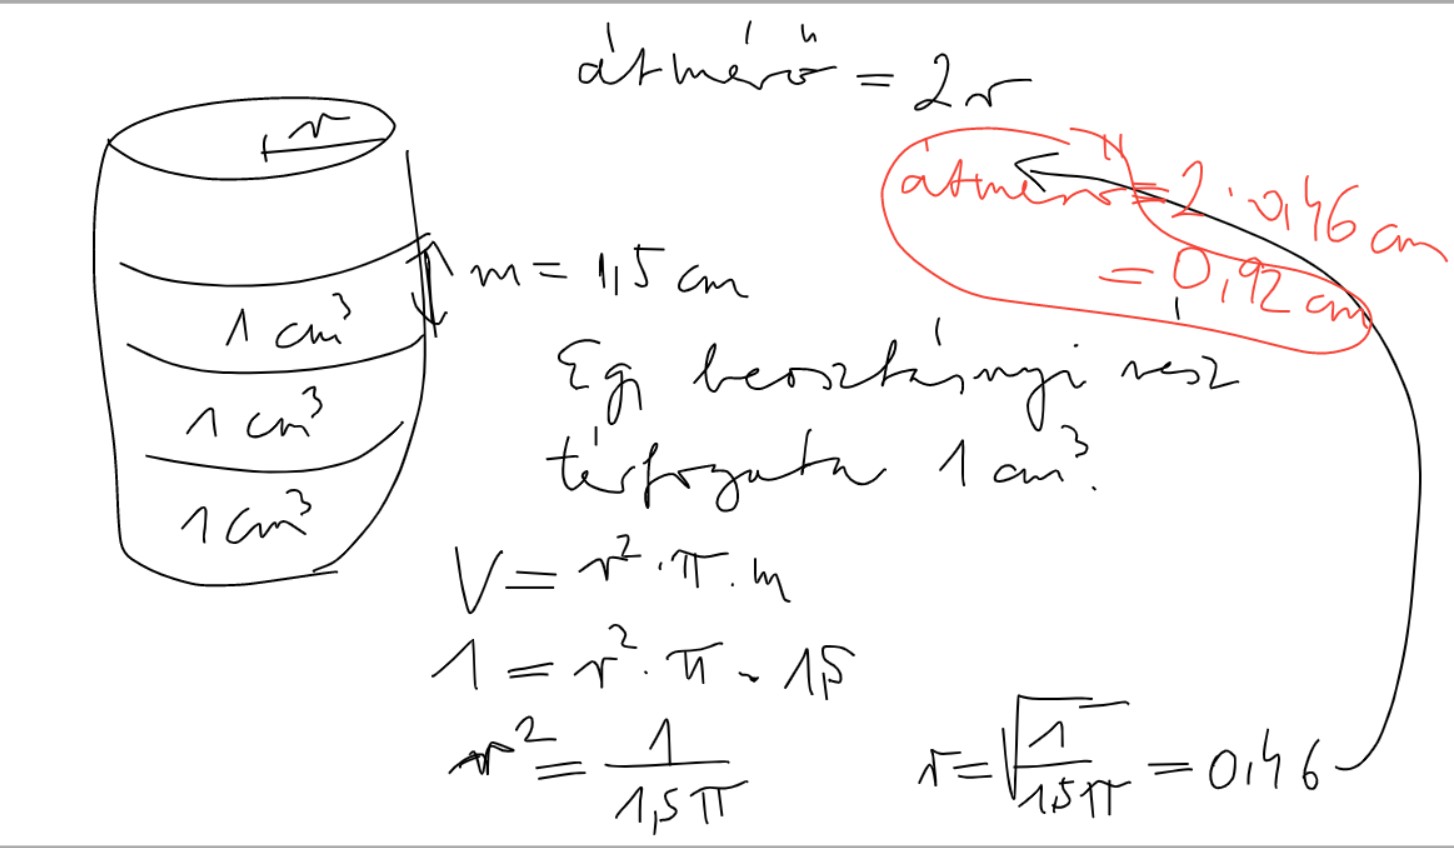 átmérő = 2r
r
átmérő = 2 · 0,46 cm
= 0,92 cm
m = 1,5 cm
1 cm³
1 cm³
1 cm³
Egy beosztásnyi rész
térfogata 1 cm³.
V = r² · π · m
1 = r² · π · 1,5
r² = 1 / 1,5π
r = √(1 / 1,5π) = 0,46